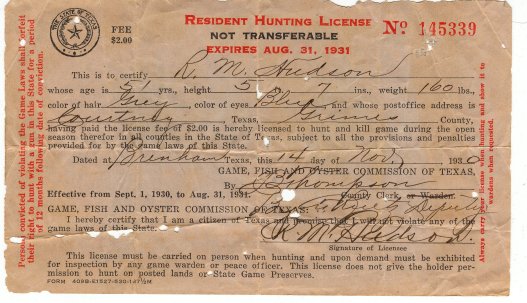 THE STATE OF TEXAS
FEE
$2.00
RESIDENT HUNTING LICENSE
NOT TRANSFERABLE
EXPIRES AUG. 31, 1931
No 145339
This is to certify R. M. Hudson
whose age is 51 yrs., height 5 7 ins., weight 160 lbs.,
color of hair Grey, color of eyes Blue and whose postoffice address is
Courtney, Texas, Grimes County,
having paid the license fee of $2.00 is hereby licensed to hunt and kill game during the open
season thereof in all counties in the State of Texas, subject to all the provisions and penalties
provided for by the game laws of this State.
Dated at Brenham Texas, this 14 day of Nov. 1930
GAME, FISH AND OYSTER COMMISSION OF TEXAS,
By Thompson
Effective from Sept. 1, 1930, to Aug. 31, 1931.
County Clerk or Warden.
GAME, FISH AND OYSTER COMMISSION OF TEXAS: Deputy
I hereby certify that I am a citizen of Texas and promise that I will not violate any of the
game laws of this State.
R. M. Hudson.
Signature of Licensee
This license must be carried on person when hunting and upon demand must be exhibited
for inspection by any game warden or peace officer. This license does not give the holder per-
mission to hunt on posted lands or State Game Preserves.
FORM 409B-E1527-530-147½M
Person convicted of violating the Game Laws shall forfeit
their right to hunt with a gun in this State for a period
of 12 months following date of conviction.
Always carry your license when hunting and show it to
wardens when requested.